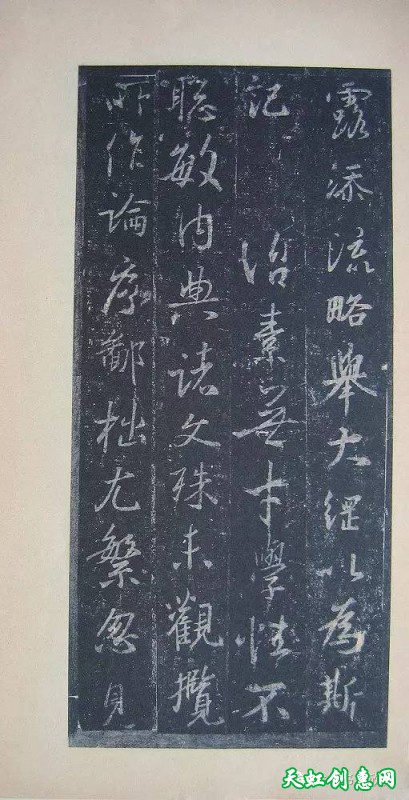 露添流略舉大綱以為斯
記 治素無才學性不
聡敏内典諸文殊未觀攬
所作論序鄙拙尤繁忽見
天虹创惠网